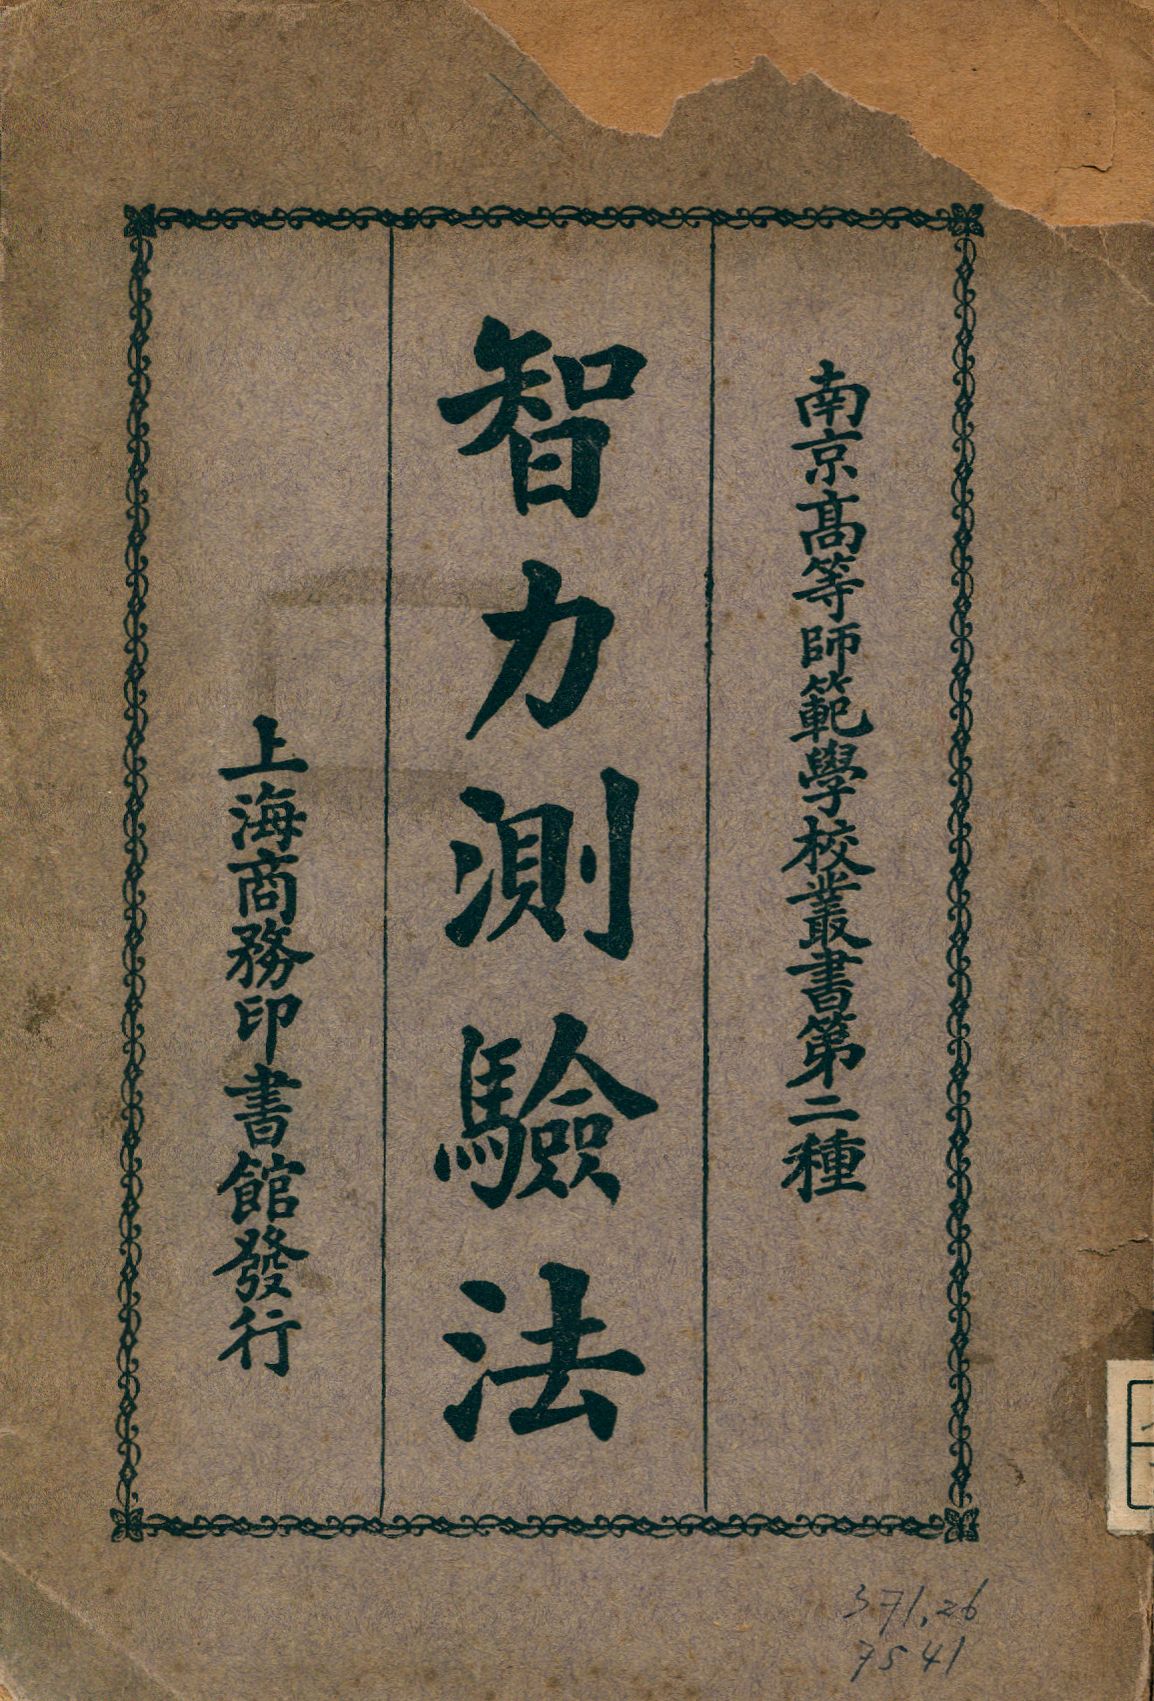 南京高等師範學校叢書第二種
智力測驗法
上海商務印書館發行
371.26
7541